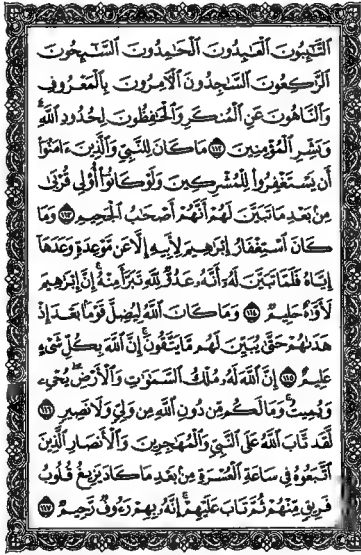 ٱلتَّـٰٓئِبُونَ ٱلْعَـٰبِدُونَ ٱلْحَـٰمِدُونَ ٱلسَّـٰٓئِحُونَ
ٱلرَّٰكِعُونَ ٱلسَّـٰجِدُونَ ٱلْـَٔامِرُونَ بِٱلْمَعْرُوفِ
وَٱلنَّاهُونَ عَنِ ٱلْمُنكَرِ وَٱلْحَـٰفِظُونَ لِحُدُودِ ٱللَّهِ ۗ
وَبَشِّرِ ٱلْمُؤْمِنِينَ ١١٢ مَا كَانَ لِلنَّبِىِّ وَٱلَّذِينَ ءَامَنُوٓا۟
أَن يَسْتَغْفِرُوا۟ لِلْمُشْرِكِينَ وَلَوْ كَانُوٓا۟ أُو۟لِى قُرْبَىٰ
مِنۢ بَعْدِ مَا تَبَيَّنَ لَهُمْ أَنَّهُمْ أَصْحَـٰبُ ٱلْجَحِيمِ ١١٣ وَمَا
كَانَ ٱسْتِغْفَارُ إِبْرَٰهِيمَ لِأَبِيهِ إِلَّا عَن مَّوْعِدَةٍ وَعَدَهَآ
إِيَّاهُ فَلَمَّا تَبَيَّنَ لَهُۥٓ أَنَّهُۥ عَدُوٌّ لِّلَّهِ تَبَرَّأَ مِنْهُ ۚ إِنَّ إِبْرَٰهِيمَ
لَأَوَّٰهٌ حَلِيمٌ ١١٤ وَمَا كَانَ ٱللَّهُ لِيُضِلَّ قَوْمًۢا بَعْدَ إِذْ
هَدَىٰهُمْ حَتَّىٰ يُبَيِّنَ لَهُم مَّا يَتَّقُونَ ۚ إِنَّ ٱللَّهَ بِكُلِّ شَىْءٍ
عَلِيمٌ ١١٥ إِنَّ ٱللَّهَ لَهُۥ مُلْكُ ٱلسَّمَـٰوَٰتِ وَٱلْأَرْضِ ۖ يُحْىِۦ
وَيُمِيتُ ۚ وَمَا لَكُم مِّن دُونِ ٱللَّهِ مِن وَلِىٍّ وَلَا نَصِيرٍ ١١٦
لَّقَد تَّابَ ٱللَّهُ عَلَى ٱلنَّبِىِّ وَٱلْمُهَـٰجِرِينَ وَٱلْأَنصَارِ ٱلَّذِينَ
ٱتَّبَعُوهُ فِى سَاعَةِ ٱلْعُسْرَةِ مِنۢ بَعْدِ مَا كَادَ يَزِيغُ قُلُوبُ
فَرِيقٍ مِّنْهُمْ ثُمَّ تَابَ عَلَيْهِمْ ۚ إِنَّهُۥ بِهِمْ رَءُوفٌ رَّحِيمٌ ١١٧